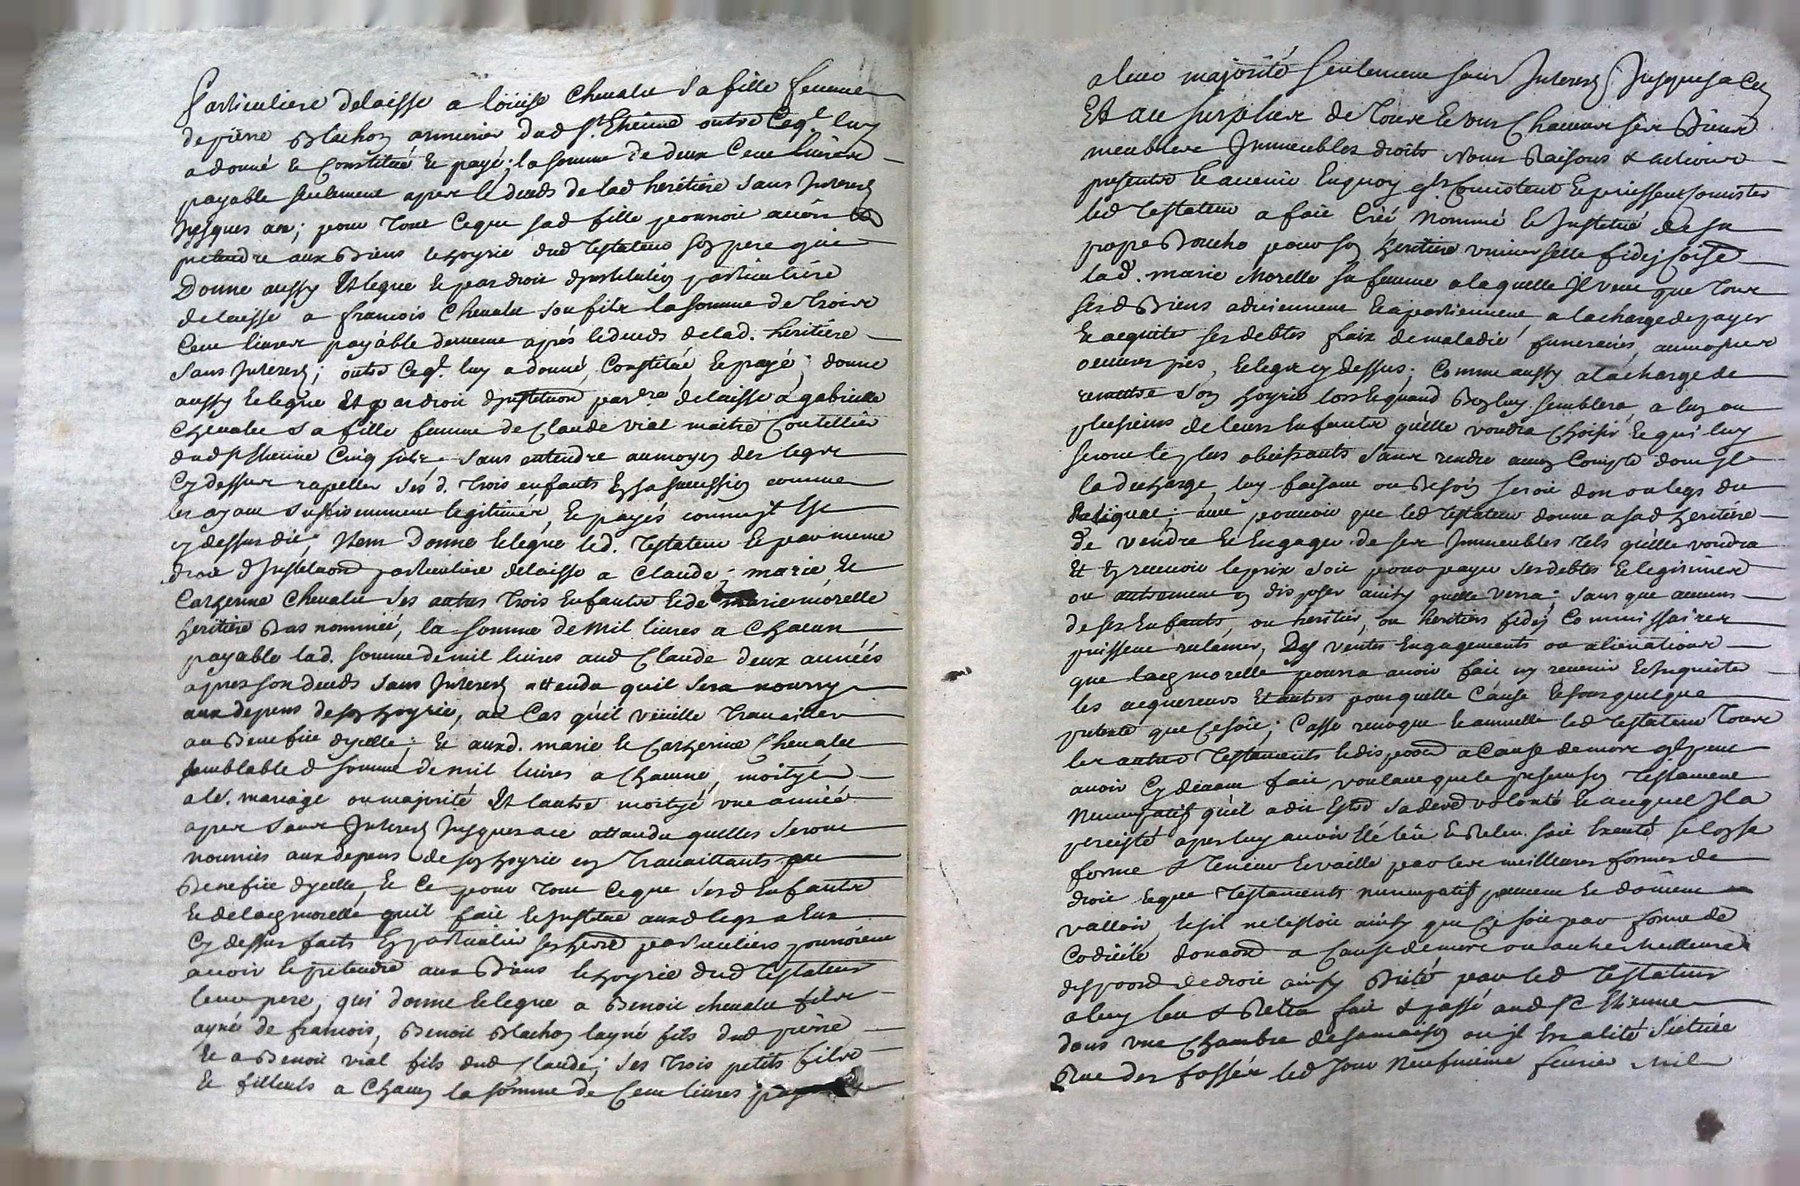 particuliere delaisse a loüise Chevalier sa fille femme
de pierre Blachon armurier dud St. Etienne outre Ceql. luy
a donné et Constitué et payé; la somme de deux Cent livres
payable seulement apres le deceds de lad heretiere sans Interest
Jusques au; pour tout ceque sad fille pourroit avoir
pretendre aux Biens et hoyrie dud testateur son pere qui
Donne aussy et legue et par droit dinstitution particuliere
delaisse a francois Chevalier son fils la somme de trois
Cent livres payable de meme aprés le deceds de lad. heritiere
sans Interest; outre Ceq. luy a donné, Constitué, et payé; donne
aussy et legue Et par droit dinstitution parre delaisse a gabrielle
Chevalier sa fille femme de Claude vial maitre Coutellier
dud St Etienne Cinq sols sans entendre au moyen des legs
Cy dessus rapeller ses d. trois enfants en sa sucession comme
les ayant sufisemment legitimés, et payés comme Il est
cy dessus dit; Item Donne et legue led. testateur et par meme
droit d Institution particuliere delaisse a Claude; marie, et
Catherine Chevalier ses autres trois Enfants et de marie morelle
heritiere Bas nommée, la somme de Mil livres a Chacun
payable lad. somme de mil livres aud Claude deux années
apres son deceds sans Interest attendu quil sera nourry
aux depens de son hoyrie, au Cas qu'il veüille travailler
au Benefice dycelle; et auxd. marie et Catherine Chevalier
semblable somme de mil livres a Chacune, moityé
a le. mariage ou majorité Et l'autre moityé une année
apres sans Interest Jusques a ce attandu quelles seront
nourries aux depens de son hoyrie en travaillants au
Benefice dycelle et Ce pour tout Ceque sesd Enfants
et de lad morelle quil fait et Institue auxd legs a Eux
Cy dessus faits En particulier ses hers particuliers pourroient
avoir et pretendre aux Biens et hoyrie dud testateur
leur pere; qui donne et legue a Benoit chevalier fils
ayné de francois, Benoit Blachon layné fils dud pierre
et a Benoit vial fils dud Claude; ses trois petits fils
et filleuls a Chacun la somme de Cent livres
a leur majorité seulement sans Interest Jusques a Ce,
Et au surplus de tous et uns Chacuns ses Biens
meubles Immeubles droits Noms Raisons & actions
presents et avenir En quoy qls Consistent et puissent consister
led testateur a fait Créé Nommé et Institué de sa
propre Bouche pour son heritiere universelle fidej Coise
lad. marie Morelle sa femme a laquelle Il veut que tous
sesd Biens adviennent et apartiennent, a la charge de payer
et acquiter ses debtes frais de maladie funeraires, aumosnes
oeuvres pies, et legs cy dessus; Comme aussy a la charge de
remettre son hoyrie lors et quand Bon luy semblera, a lun ou
plusieurs de leurs Enfants quelle voudra choisir et qui luy
seront les plus obeissants sans rendre aucun Compte dont Il
la decharge, luy faisant ou Besoin seroit don ou legs du
Reliquat; avec pouvoir que led testateur donne a sad heritiere
de vendre et Engager de ses Immeubles tels quelle voudra
et En recevoir le prix soit pour payer ses debtes et legitimes
ou autrement en disposer ainsy quelle verra; sans que aucuns
de ses Enfants, ou heritier, ou heritiers fidej Commissaires
puissent reclamer, Des ventes Engagements ou alienations
que lad morelle pourra avoir fait ny revenir et Inquieter
les acquereurs et autres pour quelle Cause et sous quelque
pretexte que Ce soit; Casse revoque et annulle led testateur tous
les autres testaments et dispoons a Cause de mort qil peut
avoir Cy devant fait voulant que le present son testament
Nuncupatif quil a dit Estre sa derre volonté et auquel Il a
percisté apres luy avoir Eté leü & Releu, soit Executé selon sa
forme & teneur et vaille par les meilleures formes de
droit et que testaments nuncupatifs peuvent et doivent
valloir et sil ne lestoit ainsy que Ce soit par forme de
Codicile donaon a Cause de mort ou autre meilleure
dispoon de droit ainsy Dicté par led testateur
a luy leu & Releu fait & passé aud St Etienne
dans une Chambre de sa maison ou il Est alité Scituée
Rue des fossés led Jour Neufvieme fevrier Mil